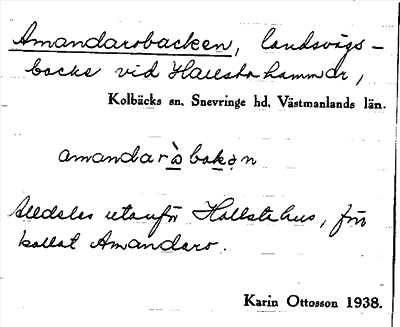 Amandarobacken, landsvägs-
backe vid Hallstahammar,
Kolbäcks sn. Snevringe hd. Västmanlands län.
amandaròbakən
Alldeles utanför Hallstahus, för
kallat Amandaro.
Karin Ottosson 1938.